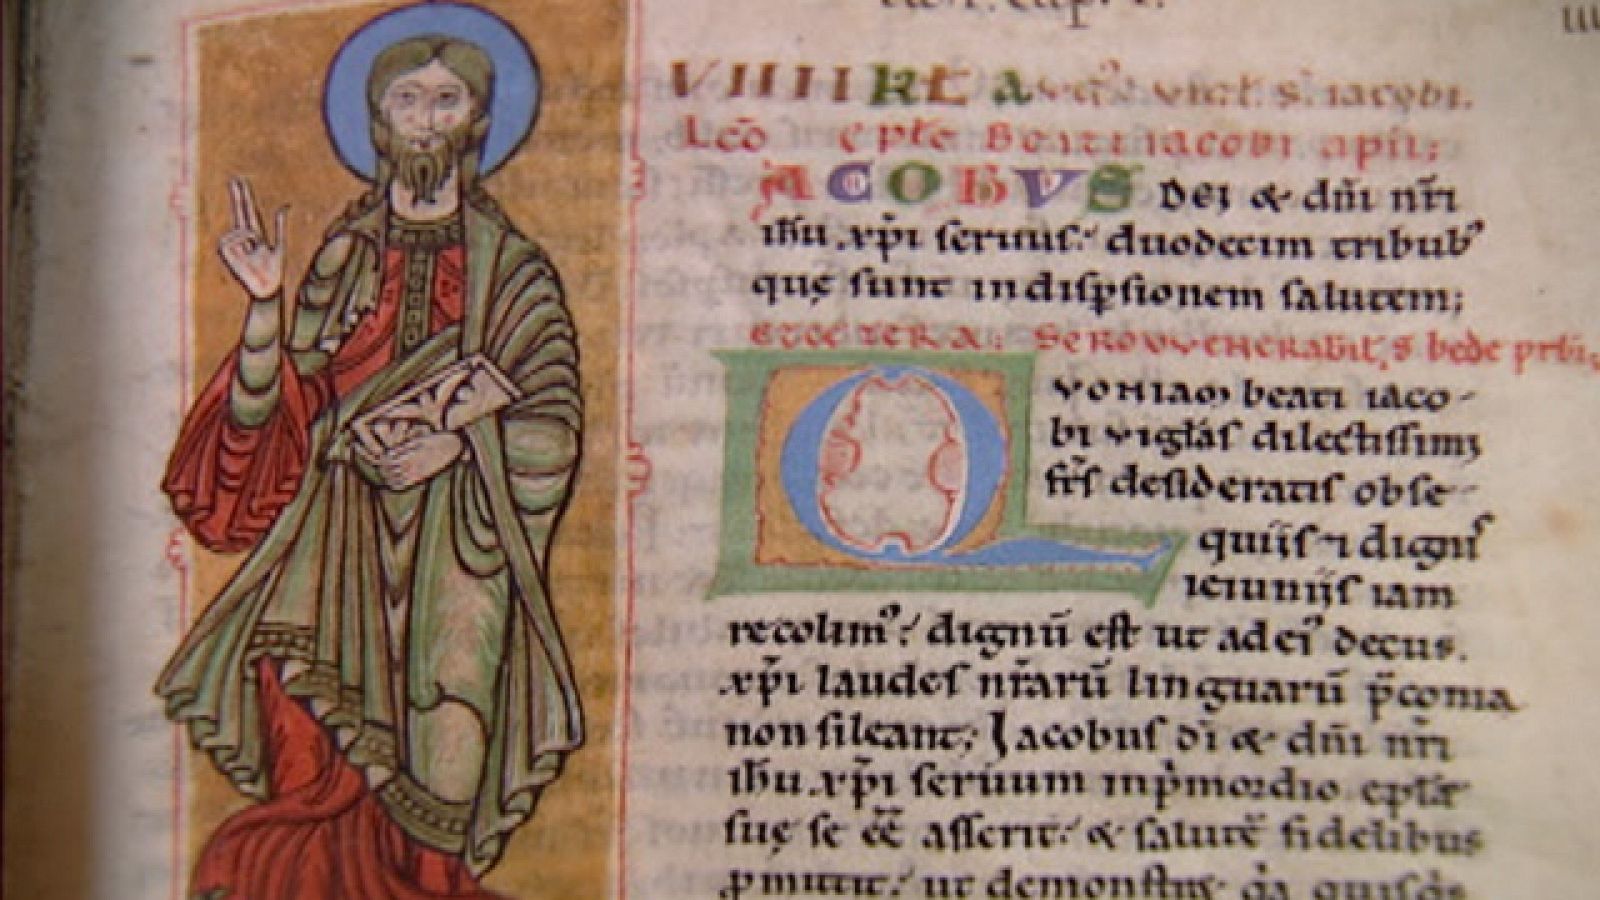 VIIII KŁ Augˀ. vigł. S. iacobi.
Lc̄o ep̄le Beati iacobi apłi;
IACOBVS Dei & dn̄i nr̄i
ih̄u xp̄i seruus: duodecim tribubꝰ
quę sunt in disp̄sionem salutem;
ET CETERA. Sermo venerabilis bede pr̄bi;
QVONIAM beati iaco-
bi vigłas dilectissimi
fr̄s desideratis obse-
quiis ⁊ dignis
ieiuniis iam
recolimꝰ: dignū est ut ad eiꝰ decus.
xp̄i laudes nr̄arū linguarū p̄conia
non sileant; Iacobus dī & dn̄i nr̄i
ih̄u xp̄i seruum in p̄mordio ep̄łę
suę se eē̄ asserit: & salutē fidelibus
ꝓmittit: ut demonstret